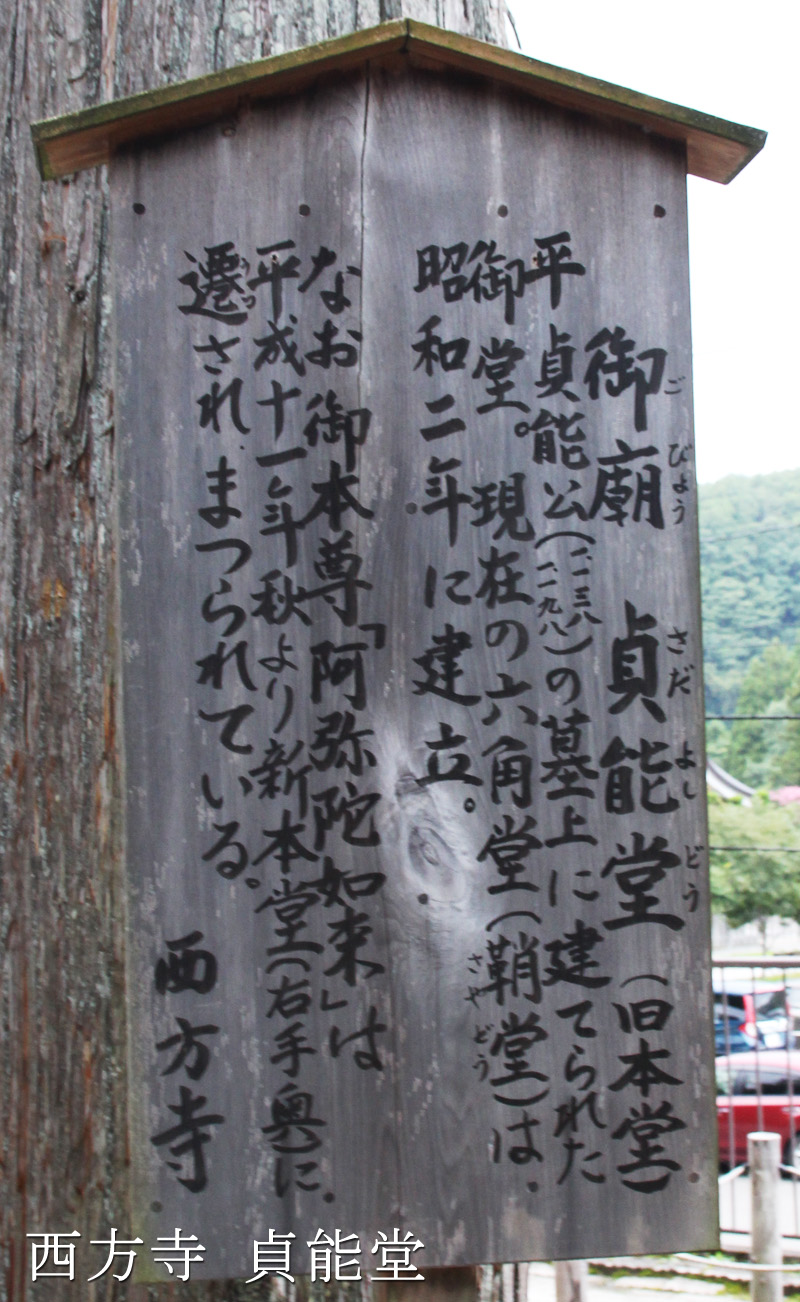 御廟 貞能堂(旧本堂)
ご びょう さだ よし どう
平貞能公(一一三八
一一九八)の墓上に建てられた
御堂。現在の六角堂(鞘堂)は、
さや どう
昭和二年に建立。
なお御本尊「阿弥陀如来」は
平成十一年秋より新本堂(右手奥)に、
遷され、まつられている。
うつ
西方寺
西方寺 貞能堂